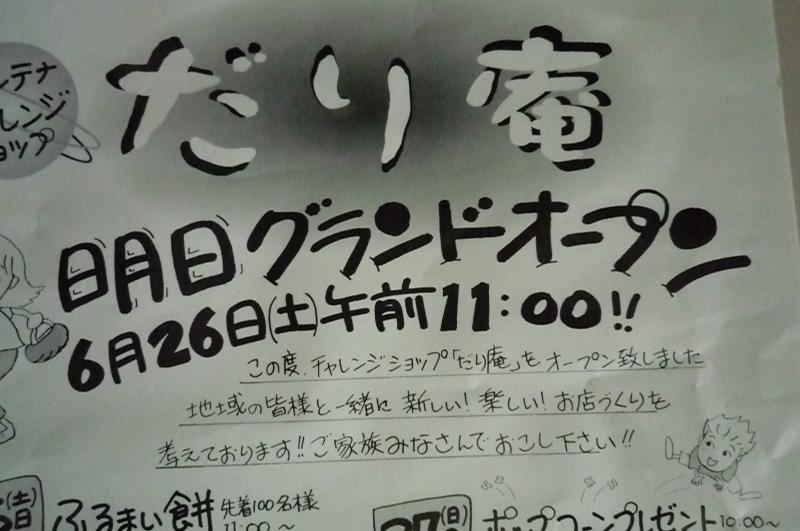 テナ
レンジ
ョップ
だり庵
明日グランドオープン
6月26日(土)午前11:00!!
この度、チャレンジショップ「だり庵」をオープン致しました
地域の皆様と一緒に 新しい!楽しい!お店づくりを
考えております!!ご家族みなさんでおこし下さい!!
(土)
日
ふるまい餅 先着100名様
11:00〜
27(日)
ポップコーンプレゼント 10:00〜